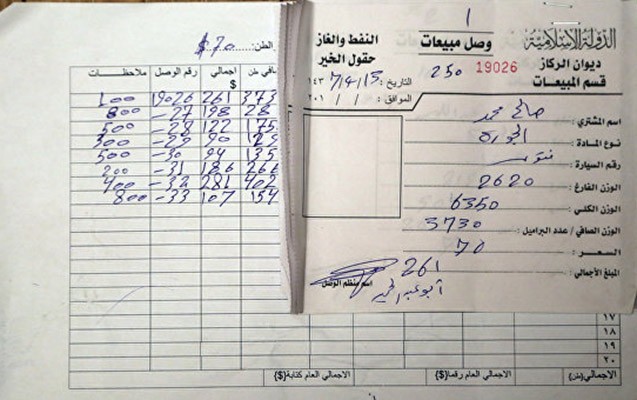 الطن: 70 $
ملاحظات رقم الوصل اجمالي $ صافي طن
19026 261 373
800 -27 198 28
500 -28 122 175
-29 90 129
500 -30 94 135
200 -31 186 266
400 -32 281 402
800 -33 107 154
١٧
١٨
١٩
٢٠
الاجمالي (طن) الاجمالي العام رقما{$} الاجمالي العام كتابة{$}
1
الدولة الاسلامية
ديوان الركاز
قسم المبيعات
وصل مبيعات
250 19026
النفط والغاز
حقول الخير
التاريخ : 15/4/7 ١٤٣
الموافق : / / ٢٠١
اسم المشتري : صالح محمد
نوع المادة :
رقم السيارة :
الوزن الفارغ : 2620
الوزن الكلي : 6350
الوزن الصافي / عدد البراميل : 3730
السعر : 70
المبلغ الأجمالي : 261
اسم منظم الوصل